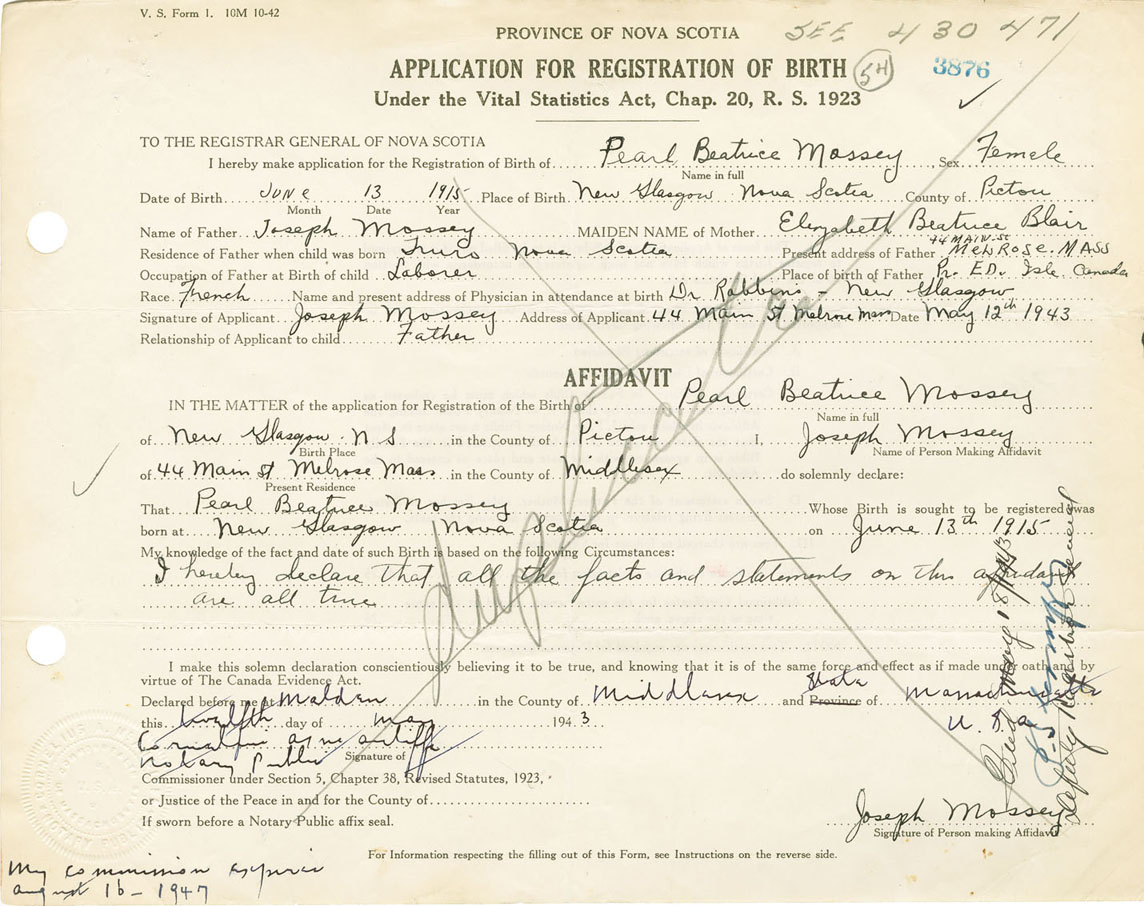 V. S. Form 1. 10M 10-42
PROVINCE OF NOVA SCOTIA SEE 430 471
APPLICATION FOR REGISTRATION OF BIRTH 54 3876
Under the Vital Statistics Act, Chap. 20, R. S. 1923
TO THE REGISTRAR GENERAL OF NOVA SCOTIA
I hereby make application for the Registration of Birth of Pearl Beatrice Mossey, Sex Female
Name in full
Date of Birth June 13 1915 Place of Birth New Glasgow Nova Scotia County of Pictou
Month Date Year
Name of Father Joseph Mossey MAIDEN NAME of Mother Elizabeth Beatrice Blair
44 MAIN ST
Residence of Father when child was born Truro Nova Scotia Present address of Father MELROSE. MASS
Occupation of Father at Birth of child Laborer Place of birth of Father Pr. ED. Isle Canada
Race French Name and present address of Physician in attendance at birth Dr Robbins - New Glasgow
Signature of Applicant Joseph Mossey Address of Applicant 44 Main St Melrose Mass Date May 12th 1943
Relationship of Applicant to child Father
AFFIDAVIT
IN THE MATTER of the application for Registration of the Birth of Pearl Beatrice Mossey
Name in full
of New Glasgow N S in the County of Pictou I, Joseph Mossey
Birth Place Name of Person Making Affidavit
of 44 Main St Melrose Mass in the County of Middlesex do solemnly declare:
Present Residence
That Pearl Beatrice Mossey Whose Birth is sought to be registered was
born at New Glasgow Nova Scotia on June 13th 1915
My knowledge of the fact and date of such Birth is based on the following Circumstances:
I hereby declare that all the facts and statements on this affidavit
are all true
I make this solemn declaration conscientiously believing it to be true, and knowing that it is of the same force and effect as if made under oath and by
virtue of The Canada Evidence Act.
Declared before me at Malden in the County of Middlesex and State Province of Massachusetts
this twelfth day of May 1943 U. S. a
Notary Public Signature of
Commissioner under Section 5, Chapter 38, Revised Statutes, 1923,
or Justice of the Peace in and for the County of
If sworn before a Notary Public affix seal.
Joseph Mossey
Signature of Person making Affidavit
For Information respecting the filling out of this Form, see Instructions on the reverse side.
My commission expires
august 16 - 1947
Filed May 18/1943
Deputy Registrar General
Duplicate